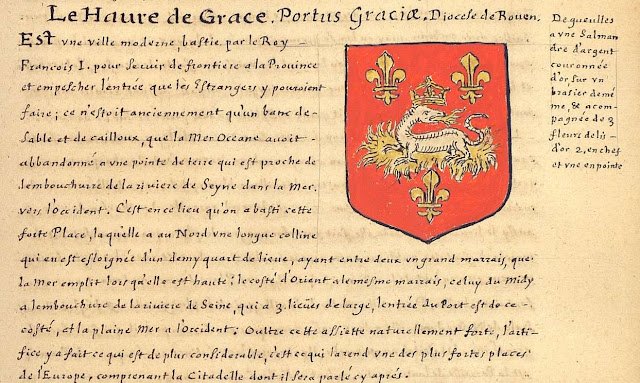 Le Haure de Grace. Portus Graciæ. Diocese de Rouen.
Est vne ville moderne, bastie par le Roy
François I. pour seruir de frontiere a la Prouince
et empescher l'entrée que les Estrangers y pouroient
faire; ce n'estoit anciennement qu'un banc de
sable et de cailloux, que la Mer Oceane auoit
abandonné a vne pointe de terre qui est proche de
lembouchure de la riuiere de Seyne dans la Mer.
vers l'Occident. C'est en ce lieu qu'on a basti cette
forte Place, laquelle a au Nord vne longue colline
qui en est esloignée d'un demy quart de lieue, ayant entre deux vn grand marrais, que
la Mer emplit lors qu'elle est haute: le costé d'Orient a le mesme marrais, celuy du Midy
a lembouchure de la riuiere de Seine, qui a 3. lieües de large, lentrée du Port est de ce
costé, et la plaine Mer a l'Occident. Oultre cette assiette naturellement forte, l'arti-
fice y a fait ce qui est de plus considerable, c'est ce qui la rend vne des plus fortes places
de l'Europe, comprenant la Citadelle dont il sera parlé cy aprés.
De gueulles
a vne Salman
dre d'argent
couronnée
d'or, sur vn
brasier de mé
me, & acom-
pagnée de 3
fleurs de lis
d'or 2, en chef
et vne en pointe